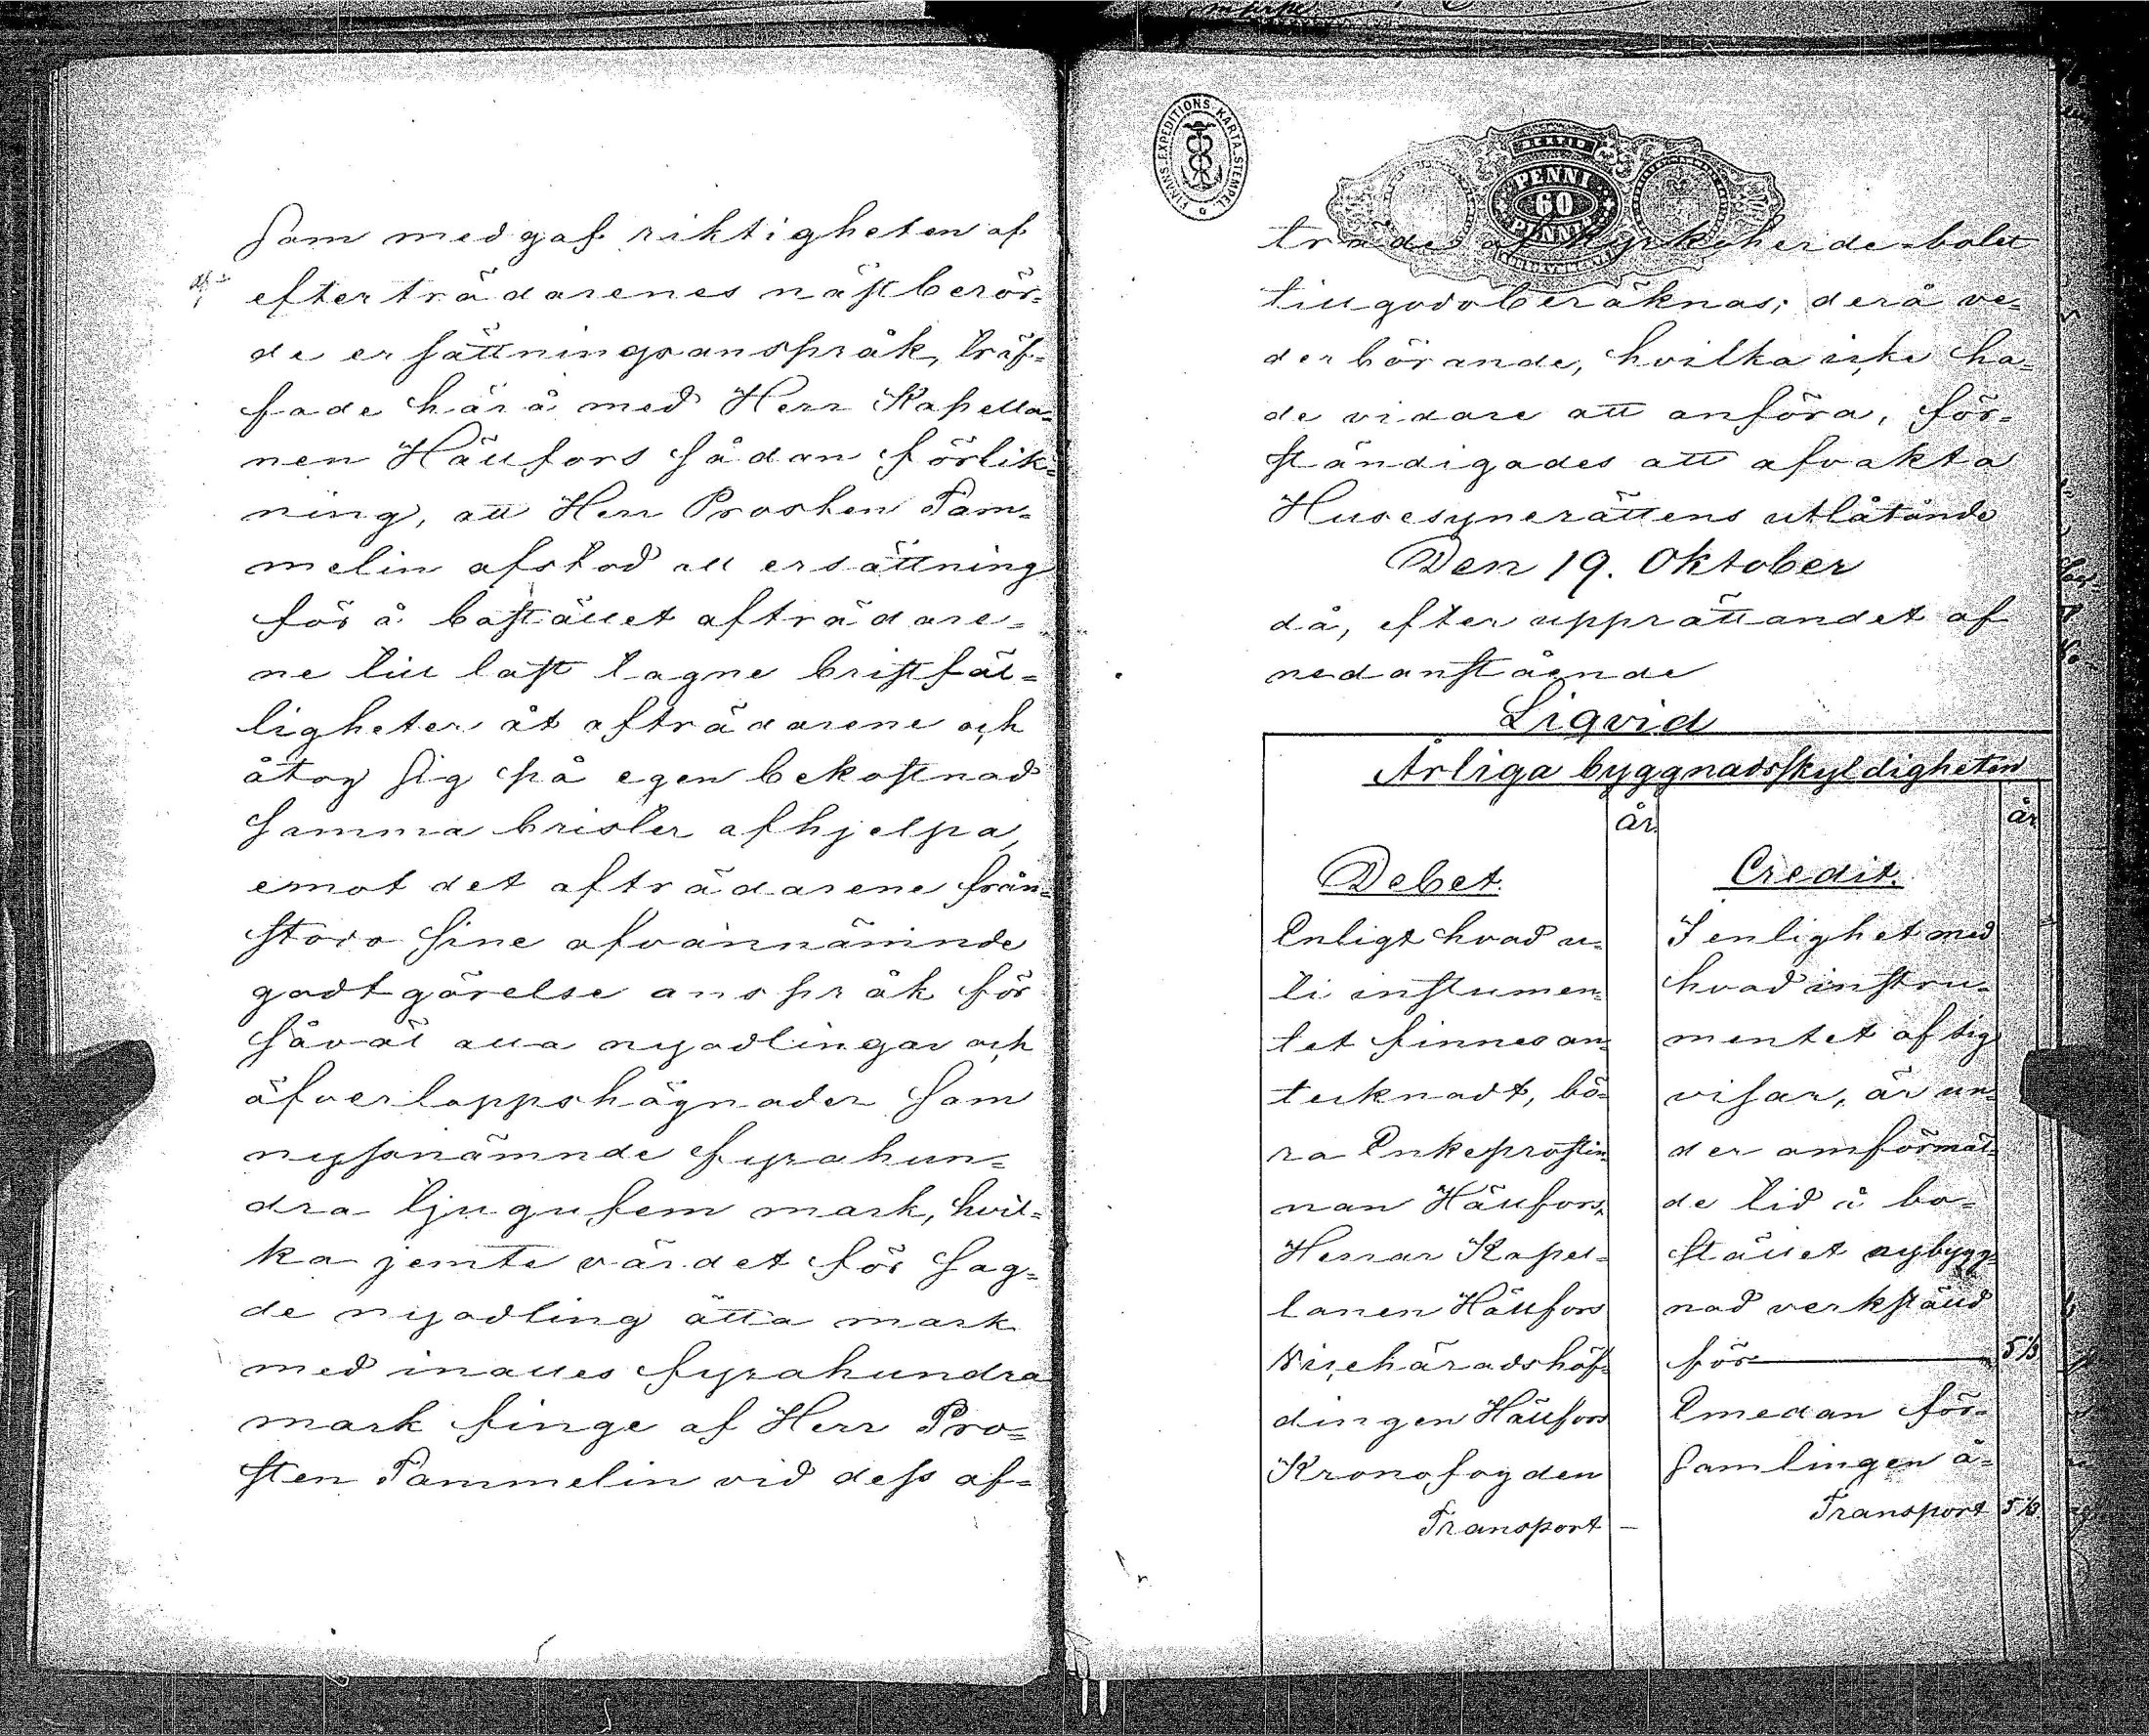 som medgaf riktigheten af
efterträdarenes näst berör-
de ersättningsanspråk, träf-
fade härå med Herr Kapella-
nen Hällfors sådan förlik-
ning, att Herr Prosten Tam-
melin afstod all ersättning
för å bostället afträdare-
ne till last tagne bristfäl-
ligheter åt afträdarene och
åtog sig på egen bekostnad
samma brister afhjelpa,
emot det afträdarene från-
stodo sine ofvannämnde
godtgörelse anspråk för
såväl alla nyodlingar och
öfverloppshägnader som
nyssnämnde fyrahun-
dra tjugufem mark, hvil-
ka jemte värdet för sag-
de nyodling åtta mark
med inalles fyrahundra
mark finge af Herr Pro-
sten Tammelin vid dess af-
FINANS.EXPEDITIONS.KARTA.STEMPEL
PENNI
60
PENNI
träde af Kyrkoherde-bolet
tillgodoberäknas; derå ve-
derbörande, hvilka icke ha-
de vidare att anföra, för-
ständigades att afvakta
Husesynerättens utlåtande
Den 19. Oktober
då, efter upprättandet af
nedanstående
Liqvid
Årliga byggnadsskyldigheten
år. år.
Debet.
Enligt hvad u-
ti instumen-
tet finnes an-
tecknadt, bö-
ra Enkeprostin-
nan Hällfors,
Herrar Kapel-
lanen Hällfors
Viceháradshöf-
dingen Hällfors
Kronofogden
Transport –
Credit.
I enlighet med
hvad instru-
mentet af sig
visar, är un-
der omförmäl-
de tid å bo-
stället nybygg-
nad verkställd
för 5 1/3
Emedan för-
samlingen å-
Transport 5 1/3